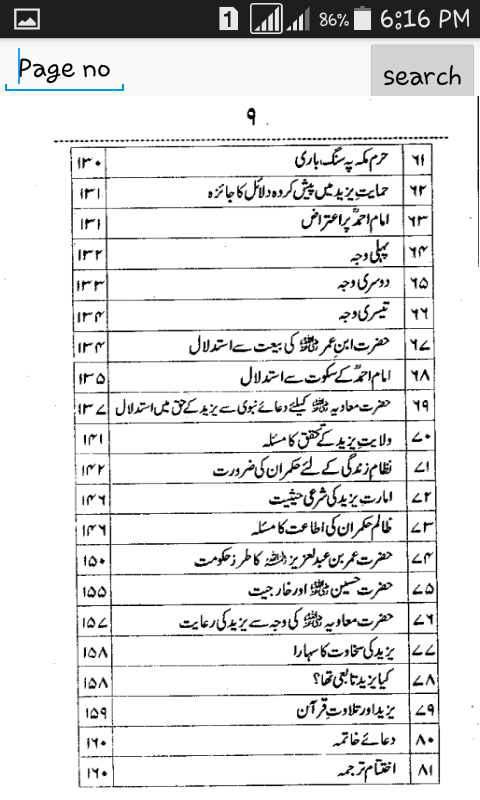 1 86% 6:16 PM
Page no
search
۹
۶۱ حرم مکہ پہ سنگ باری ۱۳۰
۶۲ حمایتِ یزید میں پیش کردہ دلائل کا جائزہ ۱۳۱
۶۳ امام احمدؒ پر اعتراض ۱۳۱
۶۴ پہلی وجہ ۱۳۲
۶۵ دوسری وجہ ۱۳۳
۶۶ تیسری وجہ ۱۳۴
۶۷ حضرت ابنِ عمر رضی اللہ عنہ کی بیعت سے استدلال ۱۳۴
۶۸ امام احمدؒ کے سکوت سے استدلال ۱۳۵
۶۹ حضرت معاویہ رضی اللہ عنہ کیلئے دعائے نبوی سے یزید کے حق میں استدلال ۱۳۷
۷۰ ولایتِ یزید کے تحقق کا مسئلہ ۱۴۱
۷۱ نظامِ زندگی کے لئے حکمران کی ضرورت ۱۴۲
۷۲ امارتِ یزید کی شرعی حیثیت ۱۴۶
۷۳ ظالم حکمران کی اطاعت کا مسئلہ ۱۴۶
۷۴ حضرت عمر بن عبدالعزیز رحمہ اللہ کا طرزِ حکومت ۱۵۰
۷۵ حضرت حسین رضی اللہ عنہ اور خارجیت ۱۵۵
۷۶ حضرت معاویہ رضی اللہ عنہ کی وجہ سے یزید کی رعایت ۱۵۷
۷۷ یزید کی سخاوت کا سہارا ۱۵۸
۷۸ کیا یزید تابعی تھا؟ ۱۵۸
۷۹ یزید اور تلاوتِ قرآن ۱۵۹
۸۰ دعائے خاتمہ ۱۶۰
۸۱ اختتام ترجمہ ۱۶۰